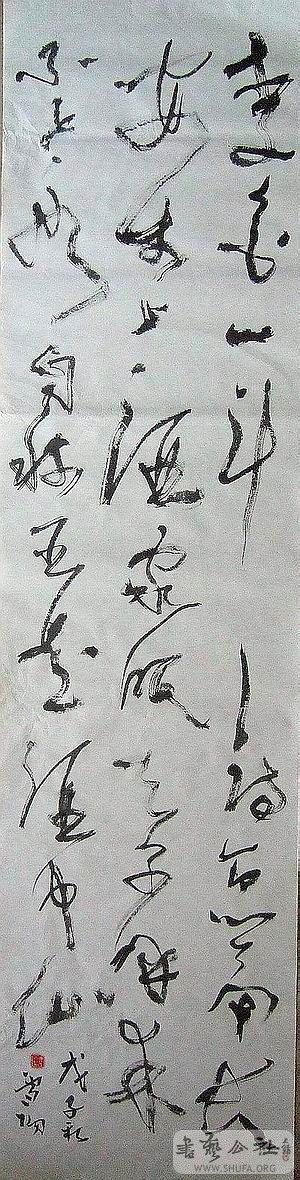 李白一斗詩百篇長
安市上酒家眠天子呼來
不上船自稱臣是酒中仙
戊子秋
書藝公社
WWW.SHUFA.ORG